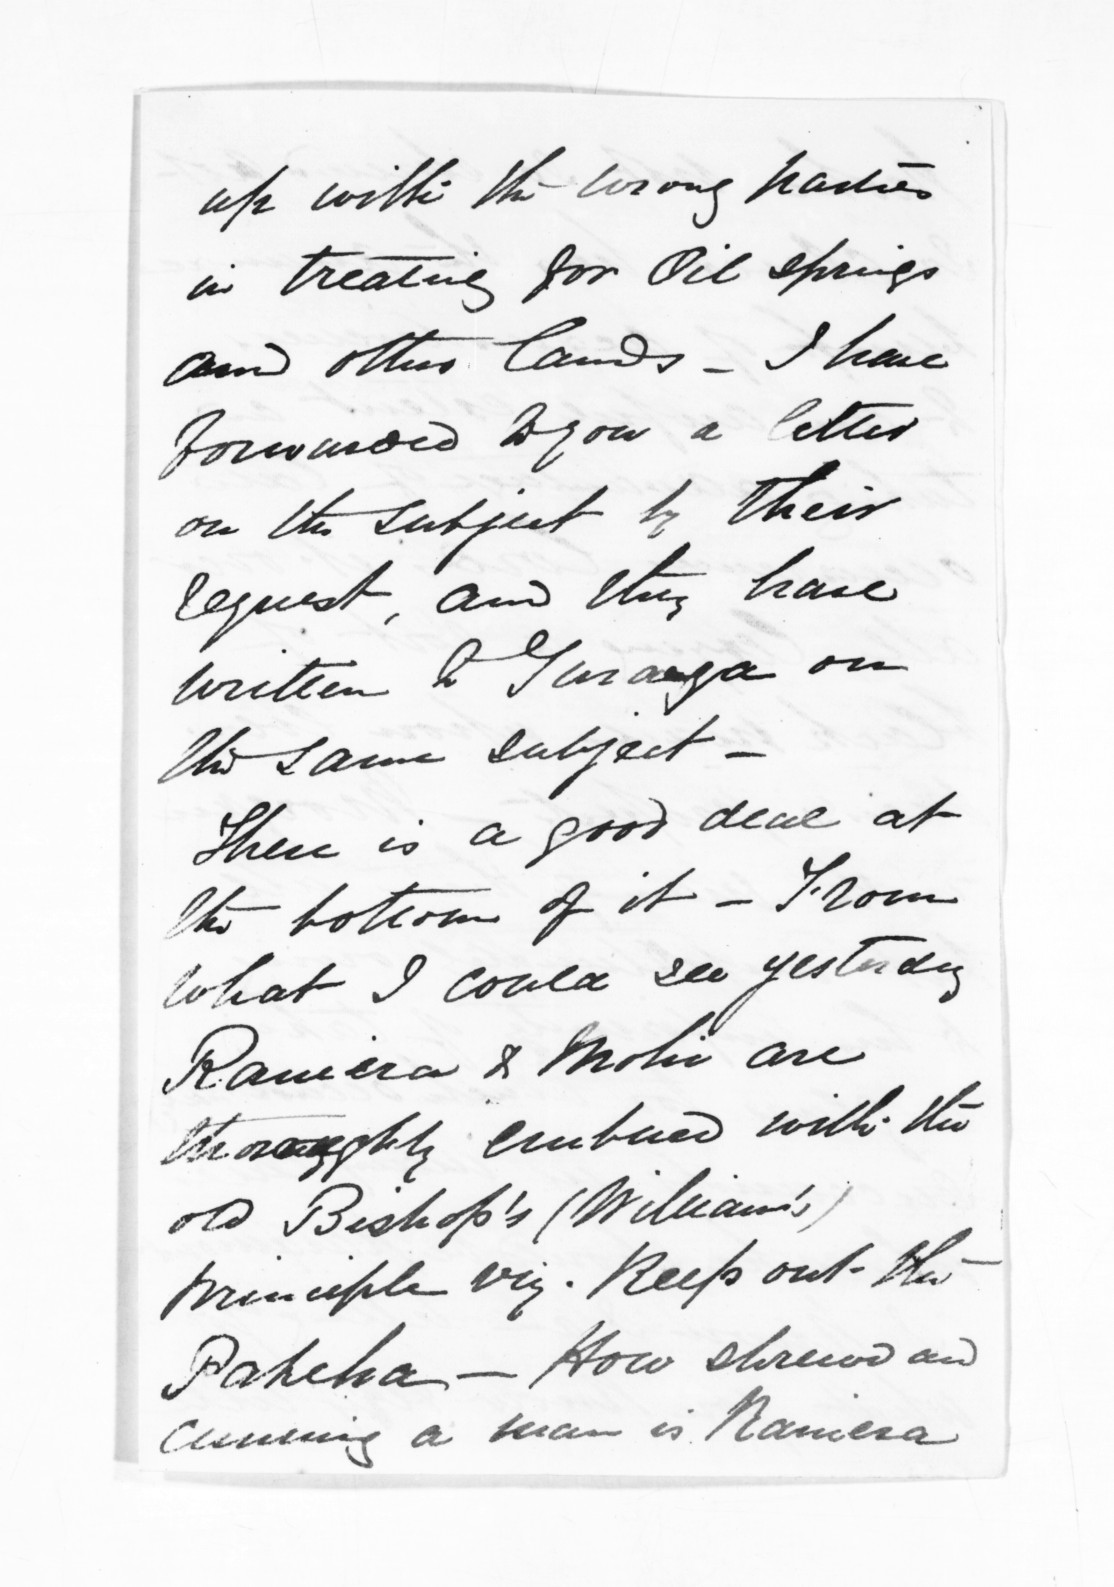 up with the wrong parties
in treating for Oil springs
and other lands - I have
forwarded to you a letter
on the subject by their
request, and they have
written to Turanga on
the same subject -
There is a good deal at
the bottom of it - From
what I could see yesterday
Raniera & Mohi are
thoroughly embued with the
old Bishop's (William's)
principle viz. Keep out the
Pakeha - How shrewd and
cunning a man is Raniera